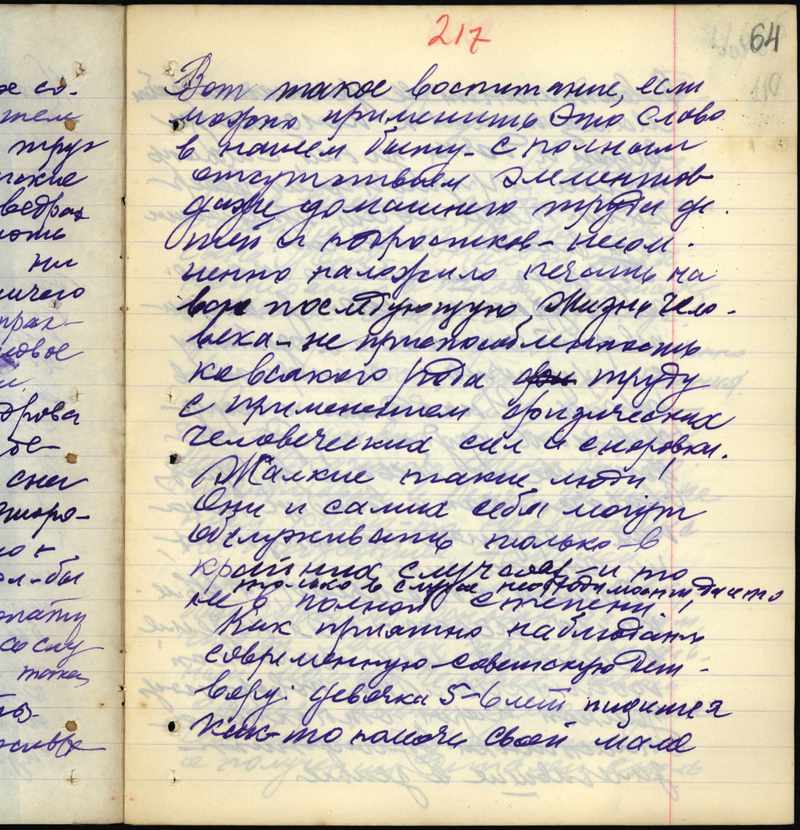 217
64
Вот такое воспитание, если
можно применить это слово
в нашем быту - с полным
отсутствием элементов
даже домашнего труда де-
тей и подростков - неом-
ненно наложило печать на
всю последующую жизнь чело-
века - не приспособленность
ко всякого рода труду
с применением физических
человеческих сил и сноровки.
Жалкие такие люди!
Они и самих себя могут
обслуживать только в
крайних случаях - и то
только в случае необходимости да и то
не в полной степени!
Как приятно наблюдать
современную советскую дет-
вору: девочка 5-6 лет тщится
как-то помочь своей маме